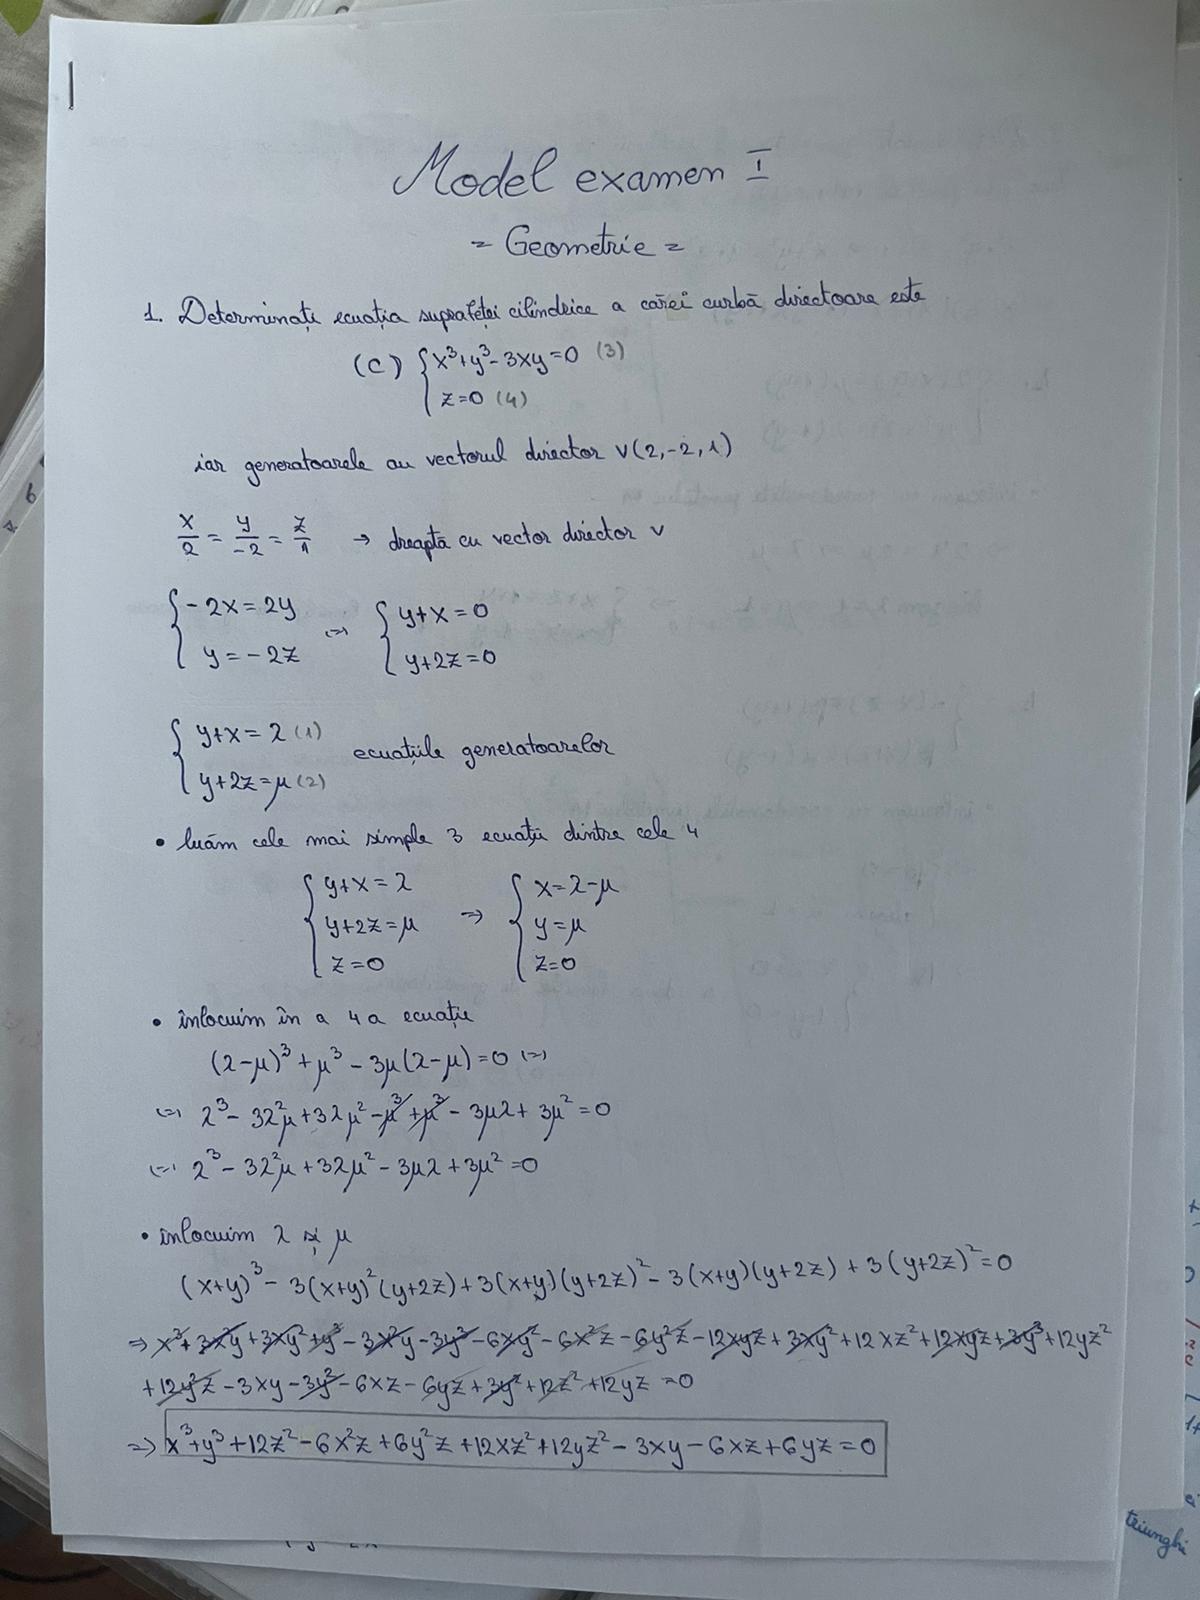 Model examen I
= Geometrie =
1. Determinați ecuația suprafeței cilindrice a cărei curbă directoare este
(C) { x³+y³-3xy=0 (3)
z=0 (4)
iar generatoarele au vectorul director v(2,-2,1)
x/2 = y/-2 = z/1 → dreaptă cu vector director v
{ -2x=2y (=) { y+x=0
y=-2z y+2z=0
{ y+x=λ (1)
y+2z=μ (2) ecuațiile generatoarelor
• luăm cele mai simple 3 ecuații dintre cele 4
{ y+x=λ { x=λ-μ
y+2z=μ => y=μ
z=0 z=0
• înlocuim în a 4 a ecuație
(λ-μ)³+μ³-3μ(λ-μ)=0 (=)
(=) λ³-3λ²μ+3λμ²-μ³+μ³-3μλ+3μ²=0
(=) λ³-3λ²μ+3λμ²-3μλ+3μ²=0
• înlocuim λ și μ
(x+y)³-3(x+y)²(y+2z)+3(x+y)(y+2z)²-3(x+y)(y+2z)+3(y+2z)²=0
=> x³+3x²y+3xy²+y³-3x²y-3y³-6xy²-6x²z-6y²z-12xyz+3xy²+12xz²+12xyz+3y³+12yz²
+12y²z-3xy-3y²-6xz-6yz+3y²+12z²+12yz=0
=> x³+y³+12z²-6x²z+6y²z+12xz²+12yz²-3xy-6xz+6yz=0
triunghi